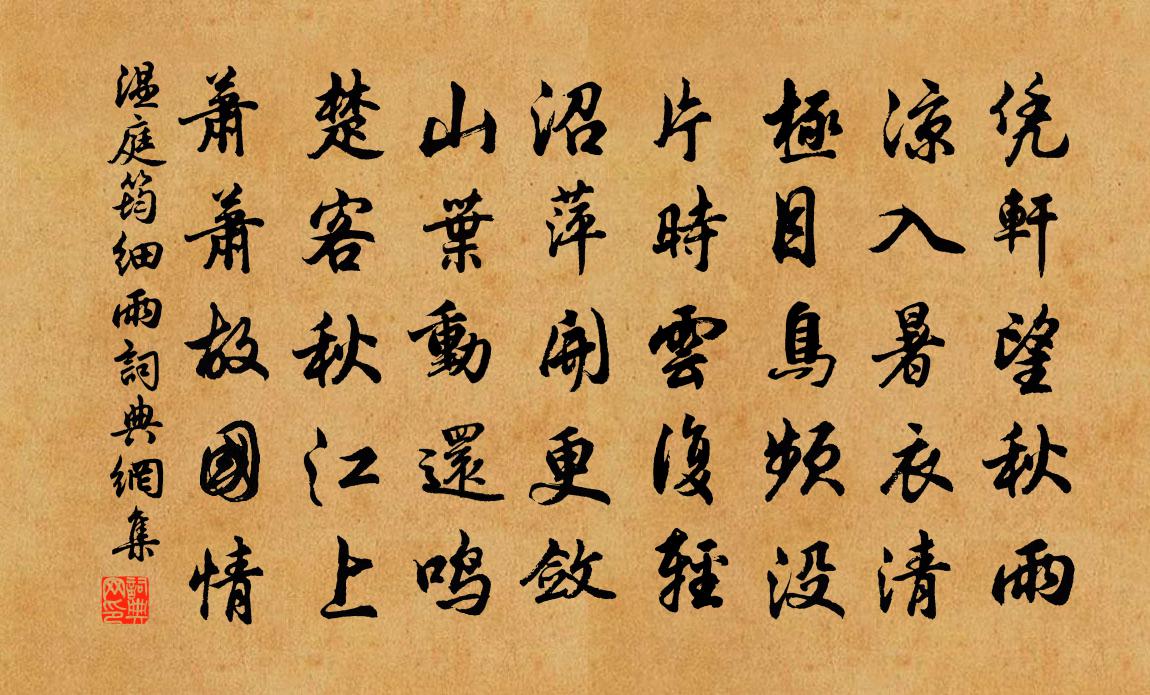 凭軒望秋雨
涼入暑衣清
極目鳥頻没
片時雲復輕
沼萍開更斂
山葉動還鳴
楚客秋江上
蕭蕭故國情
温庭筠細雨詞典網集
詞典网印